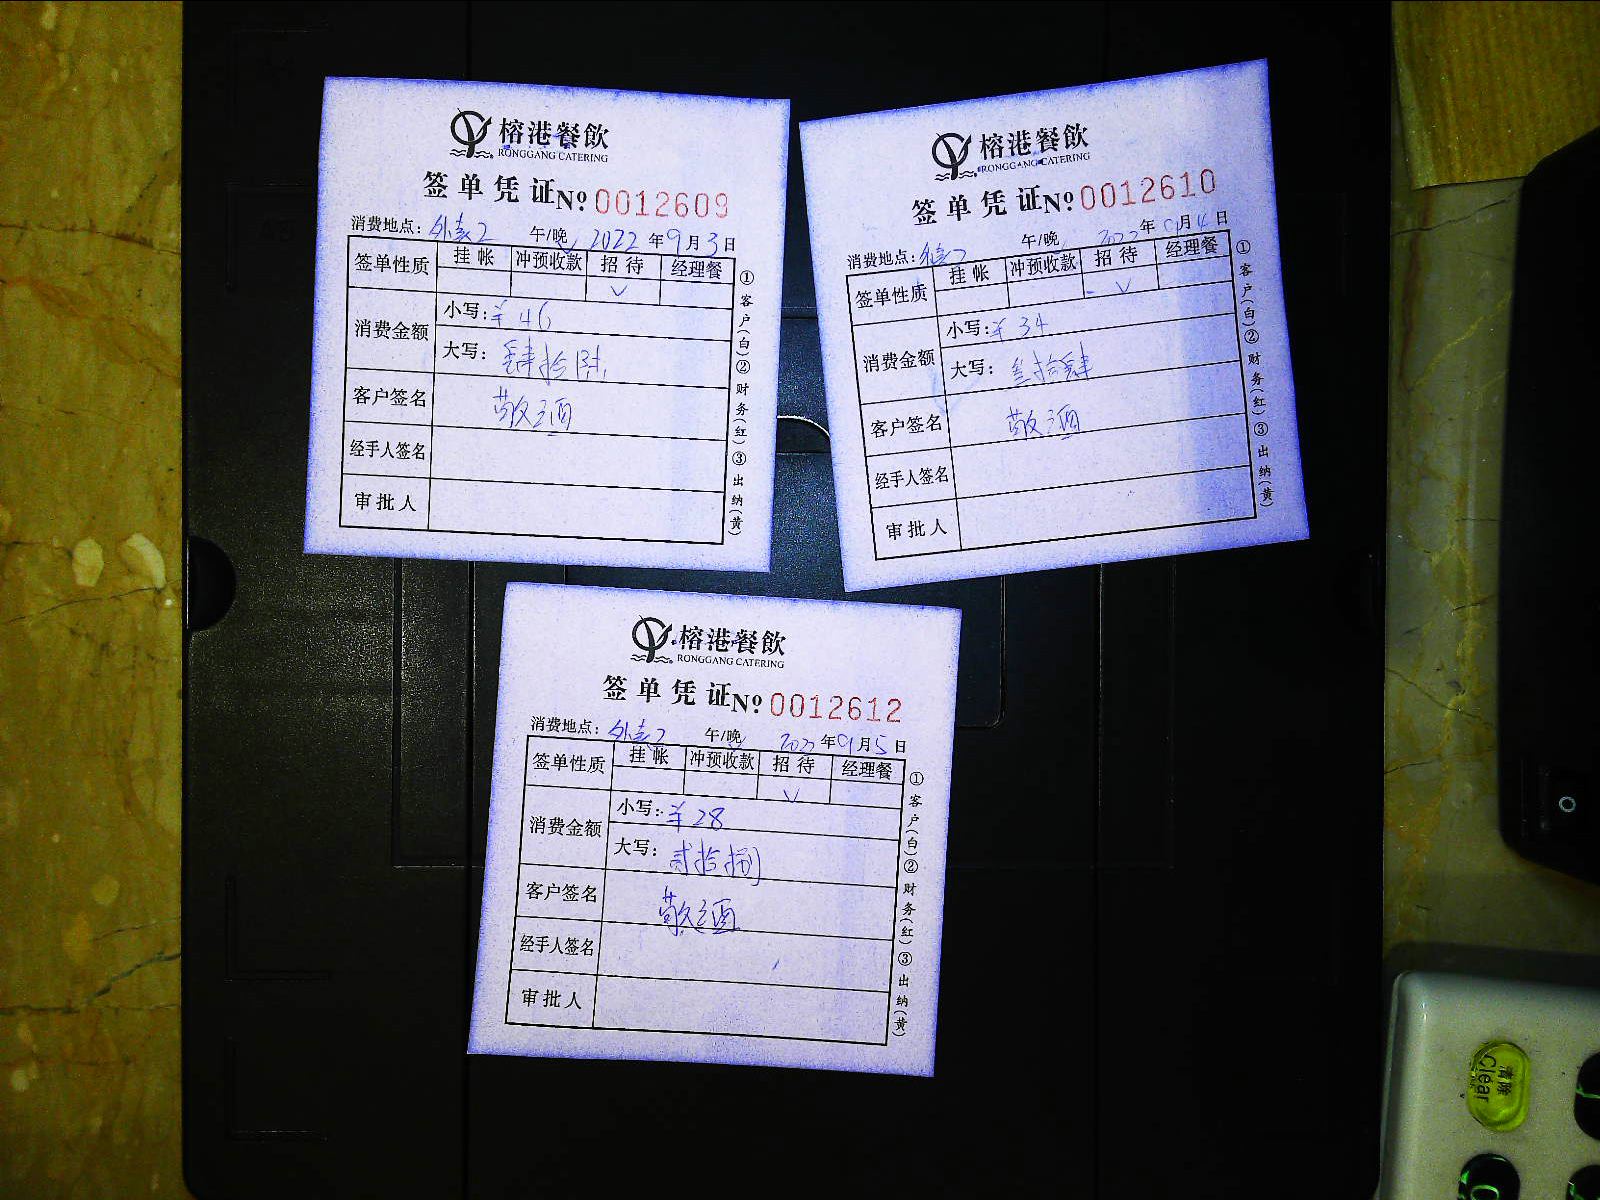 榕港餐飲
RONGGANG CATERING
签单凭证 № 0012609
消费地点: 外卖2 午/晚 2022年9月3日
签单性质 挂帐 冲预收款 招待 经理餐
✓
消费金额 小写: ¥46
大写: 肆拾陆
客户签名 敬酒
经手人签名
审批人
①客户(白)②财务(红)③出纳(黄)
榕港餐飲
RONGGANG CATERING
签单凭证 № 0012610
消费地点: 午/晚 2022年9月4日
签单性质 挂帐 冲预收款 招待 经理餐
✓
消费金额 小写: ¥34
大写: 叁拾肆
客户签名 敬酒
经手人签名
审批人
①客户(白)②财务(红)③出纳(黄)
榕港餐飲
RONGGANG CATERING
签单凭证 № 0012612
消费地点: 外卖2 午/晚 2022年9月5日
签单性质 挂帐 冲预收款 招待 经理餐
✓
消费金额 小写: ¥28
大写: 贰拾捌
客户签名 敬酒
经手人签名
审批人
①客户(白)②财务(红)③出纳(黄)
清除
Clear